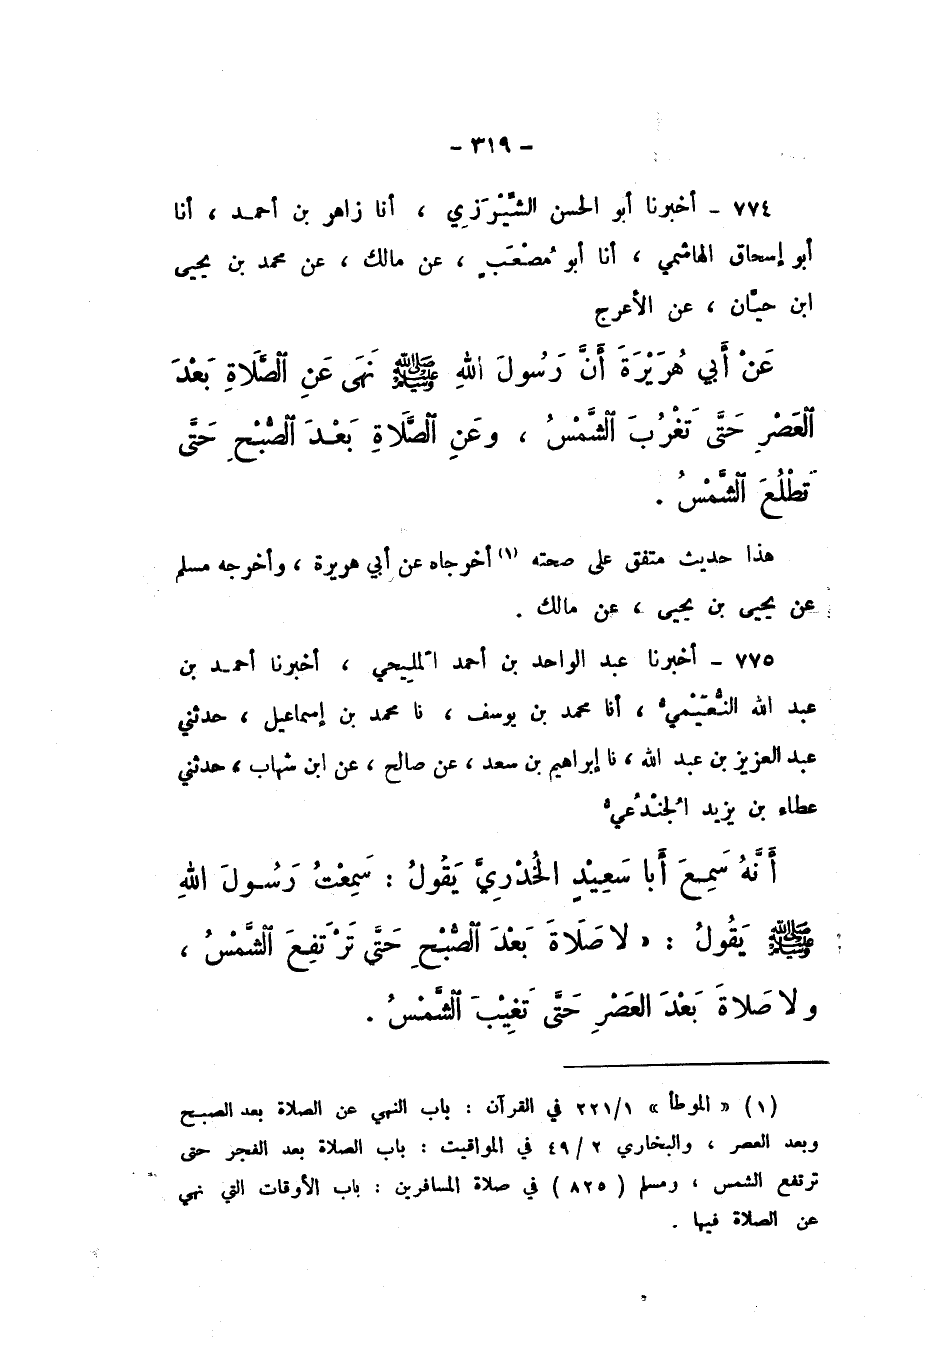 - ٣١٩ -
٧٧٤ - أخبرنا أبو الحسن الشِّيْرَزي ، أنا زاهر بن أحمد ، أنا
أبو إسحاق الهاشمي ، أنا أبو مُصْعَبٍ ، عن مالك ، عن محمد بن يحيى
ابن حبَّان ، عن الأعرج
عَنْ أَبي هُرَيْرَةَ أَنَّ رَسُولَ اللهِ ﷺ نَهَى عَنِ ٱلصَّلَاةِ بَعْدَ
ٱلعَصْرِ حَتَّى تَغْرُبَ ٱلشَّمْسُ ، وعَنِ ٱلصَّلَاةِ بَعْدَ ٱلصُّبْحِ حَتَّى
تَطْلُعَ ٱلشَّمْسُ .
هذا حديث متفق على صحته (١) أخرجاه عن أبي هريرة ، وأخرجه مسلم
عن يحيى بن يحيى ، عن مالك .
٧٧٥ - أخبرنا عبد الواحد بن أحمد المَليحي ، أخبرنا أحمد بن
عبد الله النُّعَيْمي ، أنا محمد بن يوسف ، نا محمد بن إسماعيل ، حدثني
عبد العزيز بن عبد الله ، نا إبراهيم بن سعد ، عن صالح ، عن ابن شهاب ، حدثني
عطاء بن يزيد الجُنْدُعي
أَنَّهُ سَمِعَ أَبا سَعِيْدٍ الخُدْرِيَّ يَقُولُ : سَمِعْتُ رَسُولَ اللهِ
ﷺ يَقُولُ : « لا صَلَاةَ بَعْدَ ٱلصُّبْحِ حَتَّى تَرْتَفِعَ ٱلشَّمْسُ ،
ولا صَلاةَ بَعْدَ العَصْرِ حَتَّى تَغِيْبَ ٱلشَّمْسُ .
(١) « الموطأ » ٢٢١/١ في القرآن : باب النهي عن الصلاة بعد الصبح
وبعد العصر ، والبخاري ٤٩/٢ في المواقيت : باب الصلاة بعد الفجر حتى
ترتفع الشمس ، ومسلم ( ٨٢٥ ) في صلاة المسافرين : باب الأوقات التي نهي
عن الصلاة فيها .